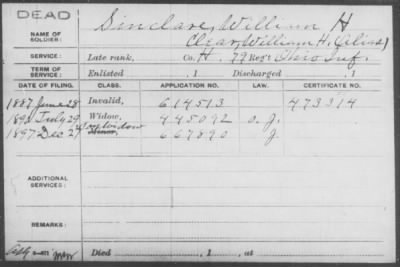 DEAD
Sinclare, William H
NAME OF SOLDIER:
Clear, William H. (Alias)
SERVICE: Late rank, Co. H. 79 Reg't Ohio Inf.
TERM OF SERVICE: Enlisted , 1 Discharged , 1
DATE OF FILING. CLASS. APPLICATION NO. LAW. CERTIFICATE NO.
1887 June 28 Invalid, 614513 473314
1890 July 29 Widow, 445092 O. J.
1897 Dec 24 Widow 667890 J
Minor,
ADDITIONAL SERVICES:
REMARKS:
Died , 1 , at